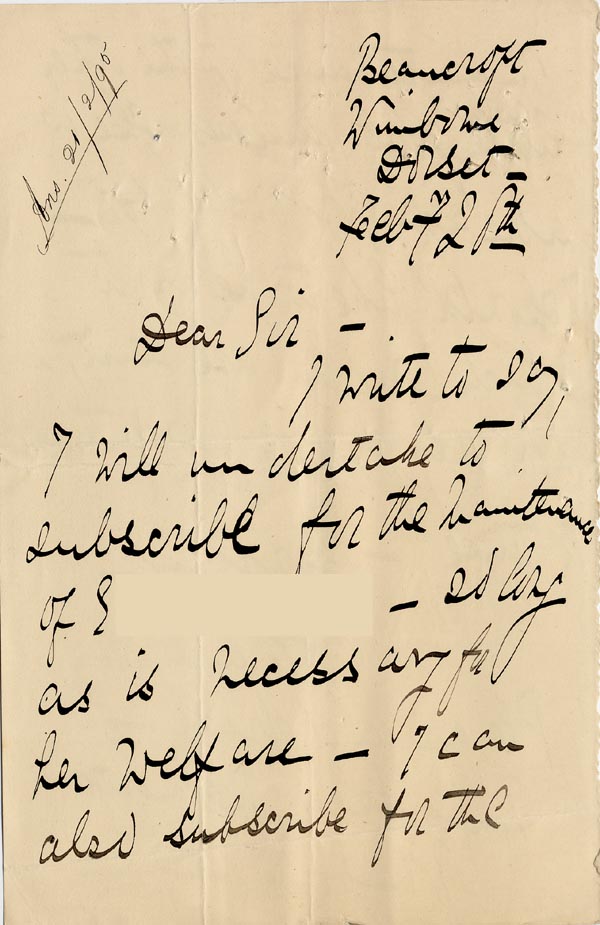 Ans. 21/2/95
Beaucroft
Wimborne
Dorset –
Feby 20th
Dear Sir –
I write to say,
I will undertake to
subscribe for the maintenance
of E – so long
as is necessary for
her welfare – I can
also subscribe for the